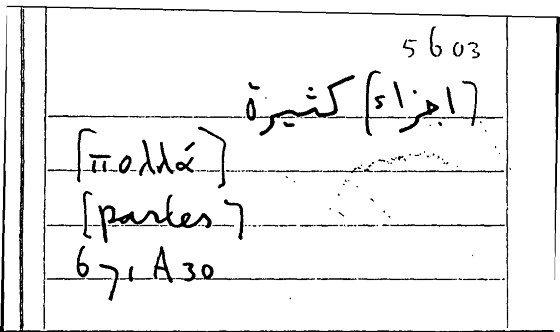 5603
[اجزاء] كثيرة
[πολλά]
[partes]
671 A 30